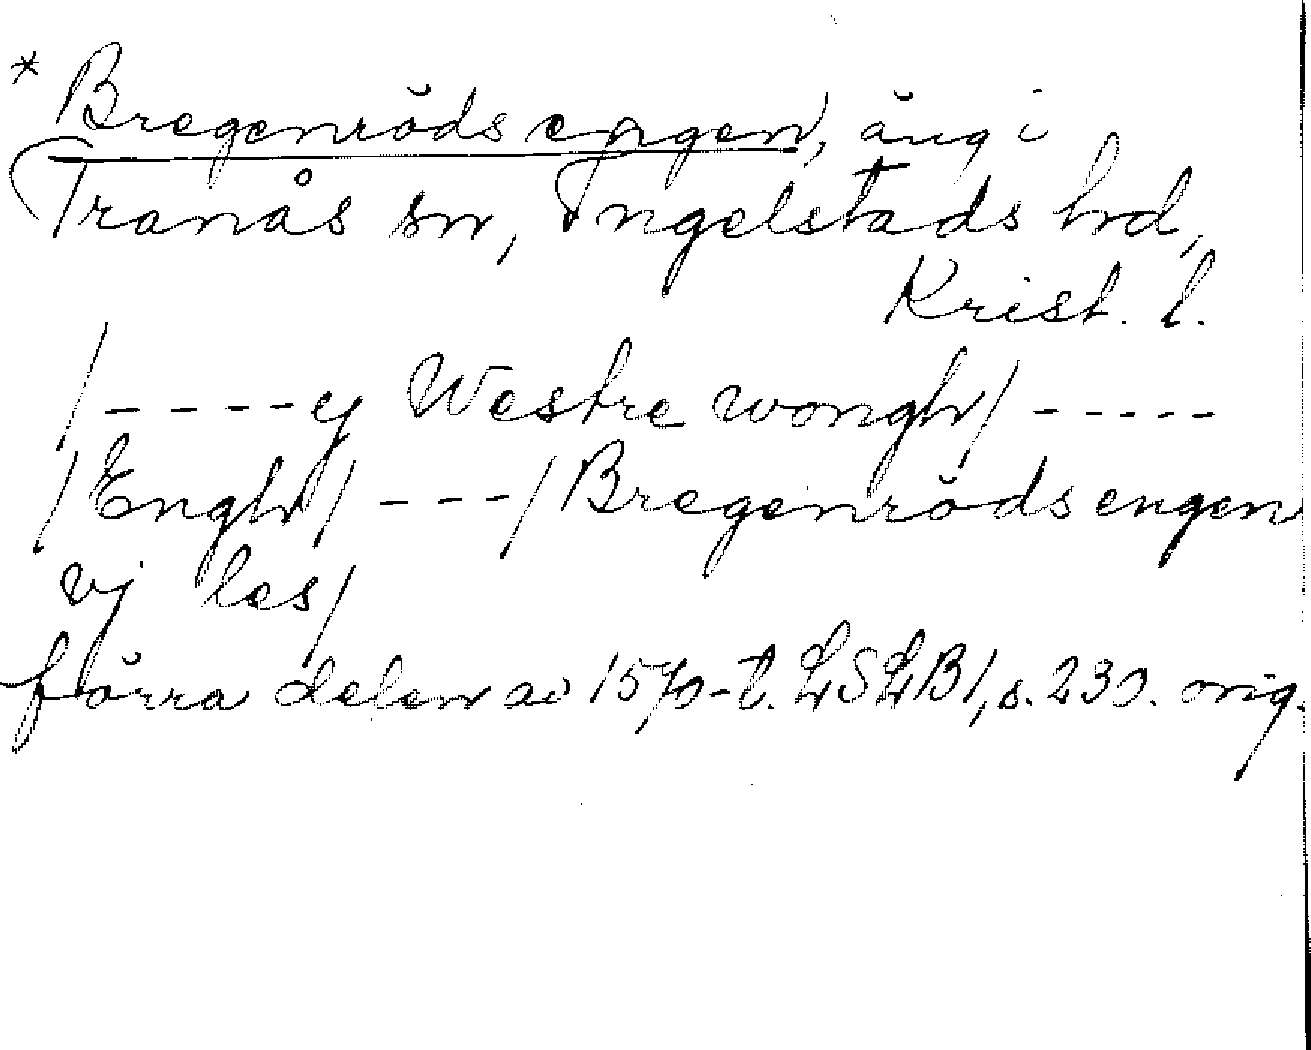 * Bregenröds engen, äng i
Tranås sn, Ingelstads hd,
Krist. l.
/----ej Westre wongh/-----
/Engh/---/Bregenröds engen
vj les/
förra delen av 1570-t. LSLB1, s. 230. orig.